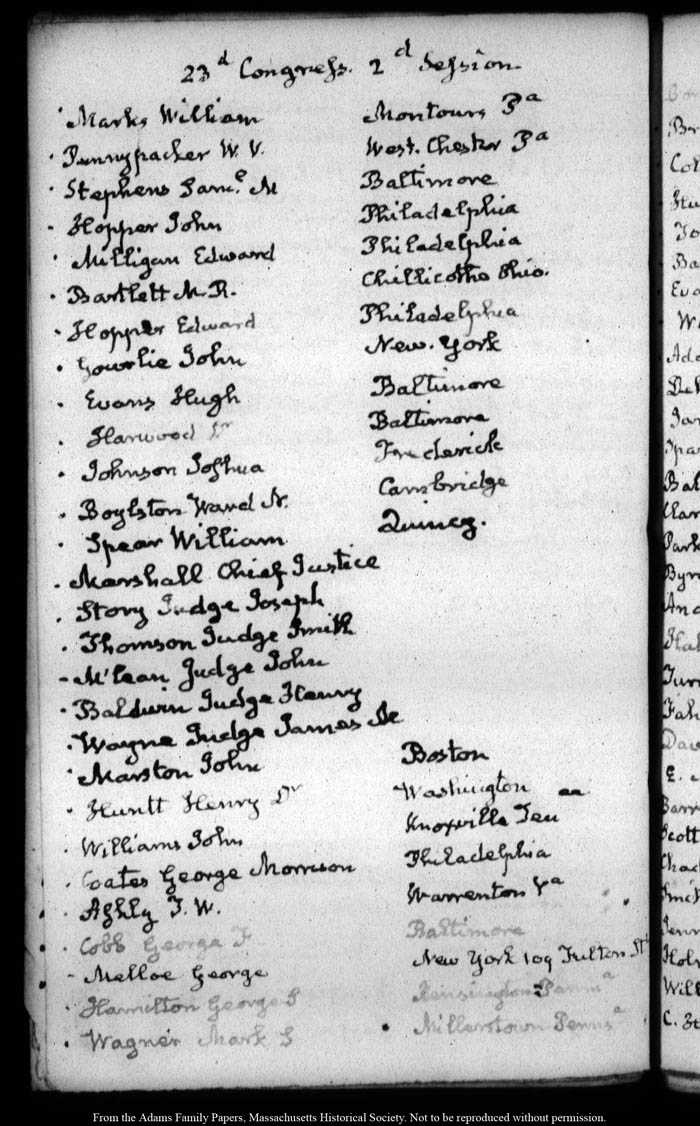 23d Congress. 2d Session
Marks William Montours Pa
Pennypacker W. V. West. Chester Pa
Stephens Saml M Baltimore
Hopper John Philadelphia
Milligan Edward Philadelphia
Bartlett M. R. Chillicothe Ohio.
Hopper Edward Philadelphia
Gourlie John New. York
Evans Hugh Baltimore
Harwood Dr Baltimore
Johnson Joshua Frederick
Boylston Ward N. Cambridge
Spear William Quincy.
Marshall Chief Justice
Story Judge Joseph
Thomson Judge Smith
McLean Judge John
Baldwin Judge Henry
Wayne Judge James
Marston John Boston
Huntt Henry Dr Washington
Williams John Knoxville Ten
Coates George Morrison Philadelphia
Ashby T. W. Warrenton Va
Cobb George F Baltimore
Melloe George New York 109 Fulton St
Hamilton George S Kensington Penna
Wagner Mark S Millerstown Pennsa
From the Adams Family Papers, Massachusetts Historical Society. Not to be reproduced without permission.